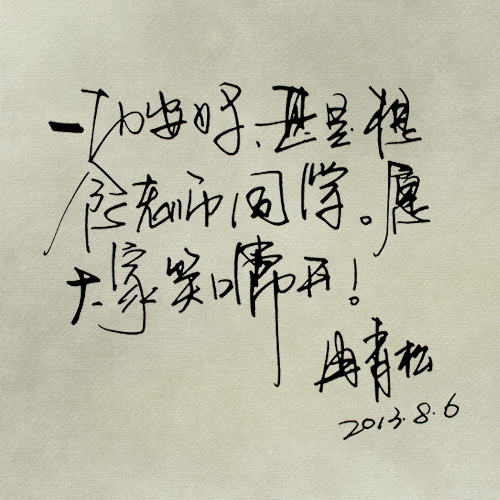 一切安好、甚是想
念老师同学。愿
大家笑口常开!
冉青松
2013.8.6